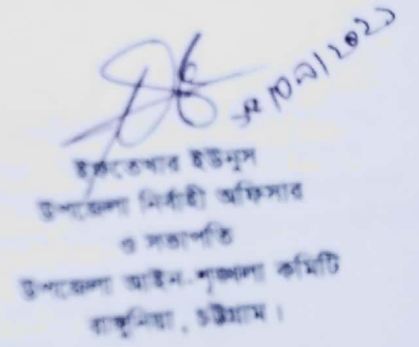 ইফতেখার ইউনুস
উপজেলা নির্বাহী অফিসার
ও সভাপতি
উপজেলা আইন-শৃঙ্খলা কমিটি
রাঙ্গুনিয়া, চট্টগ্রাম।